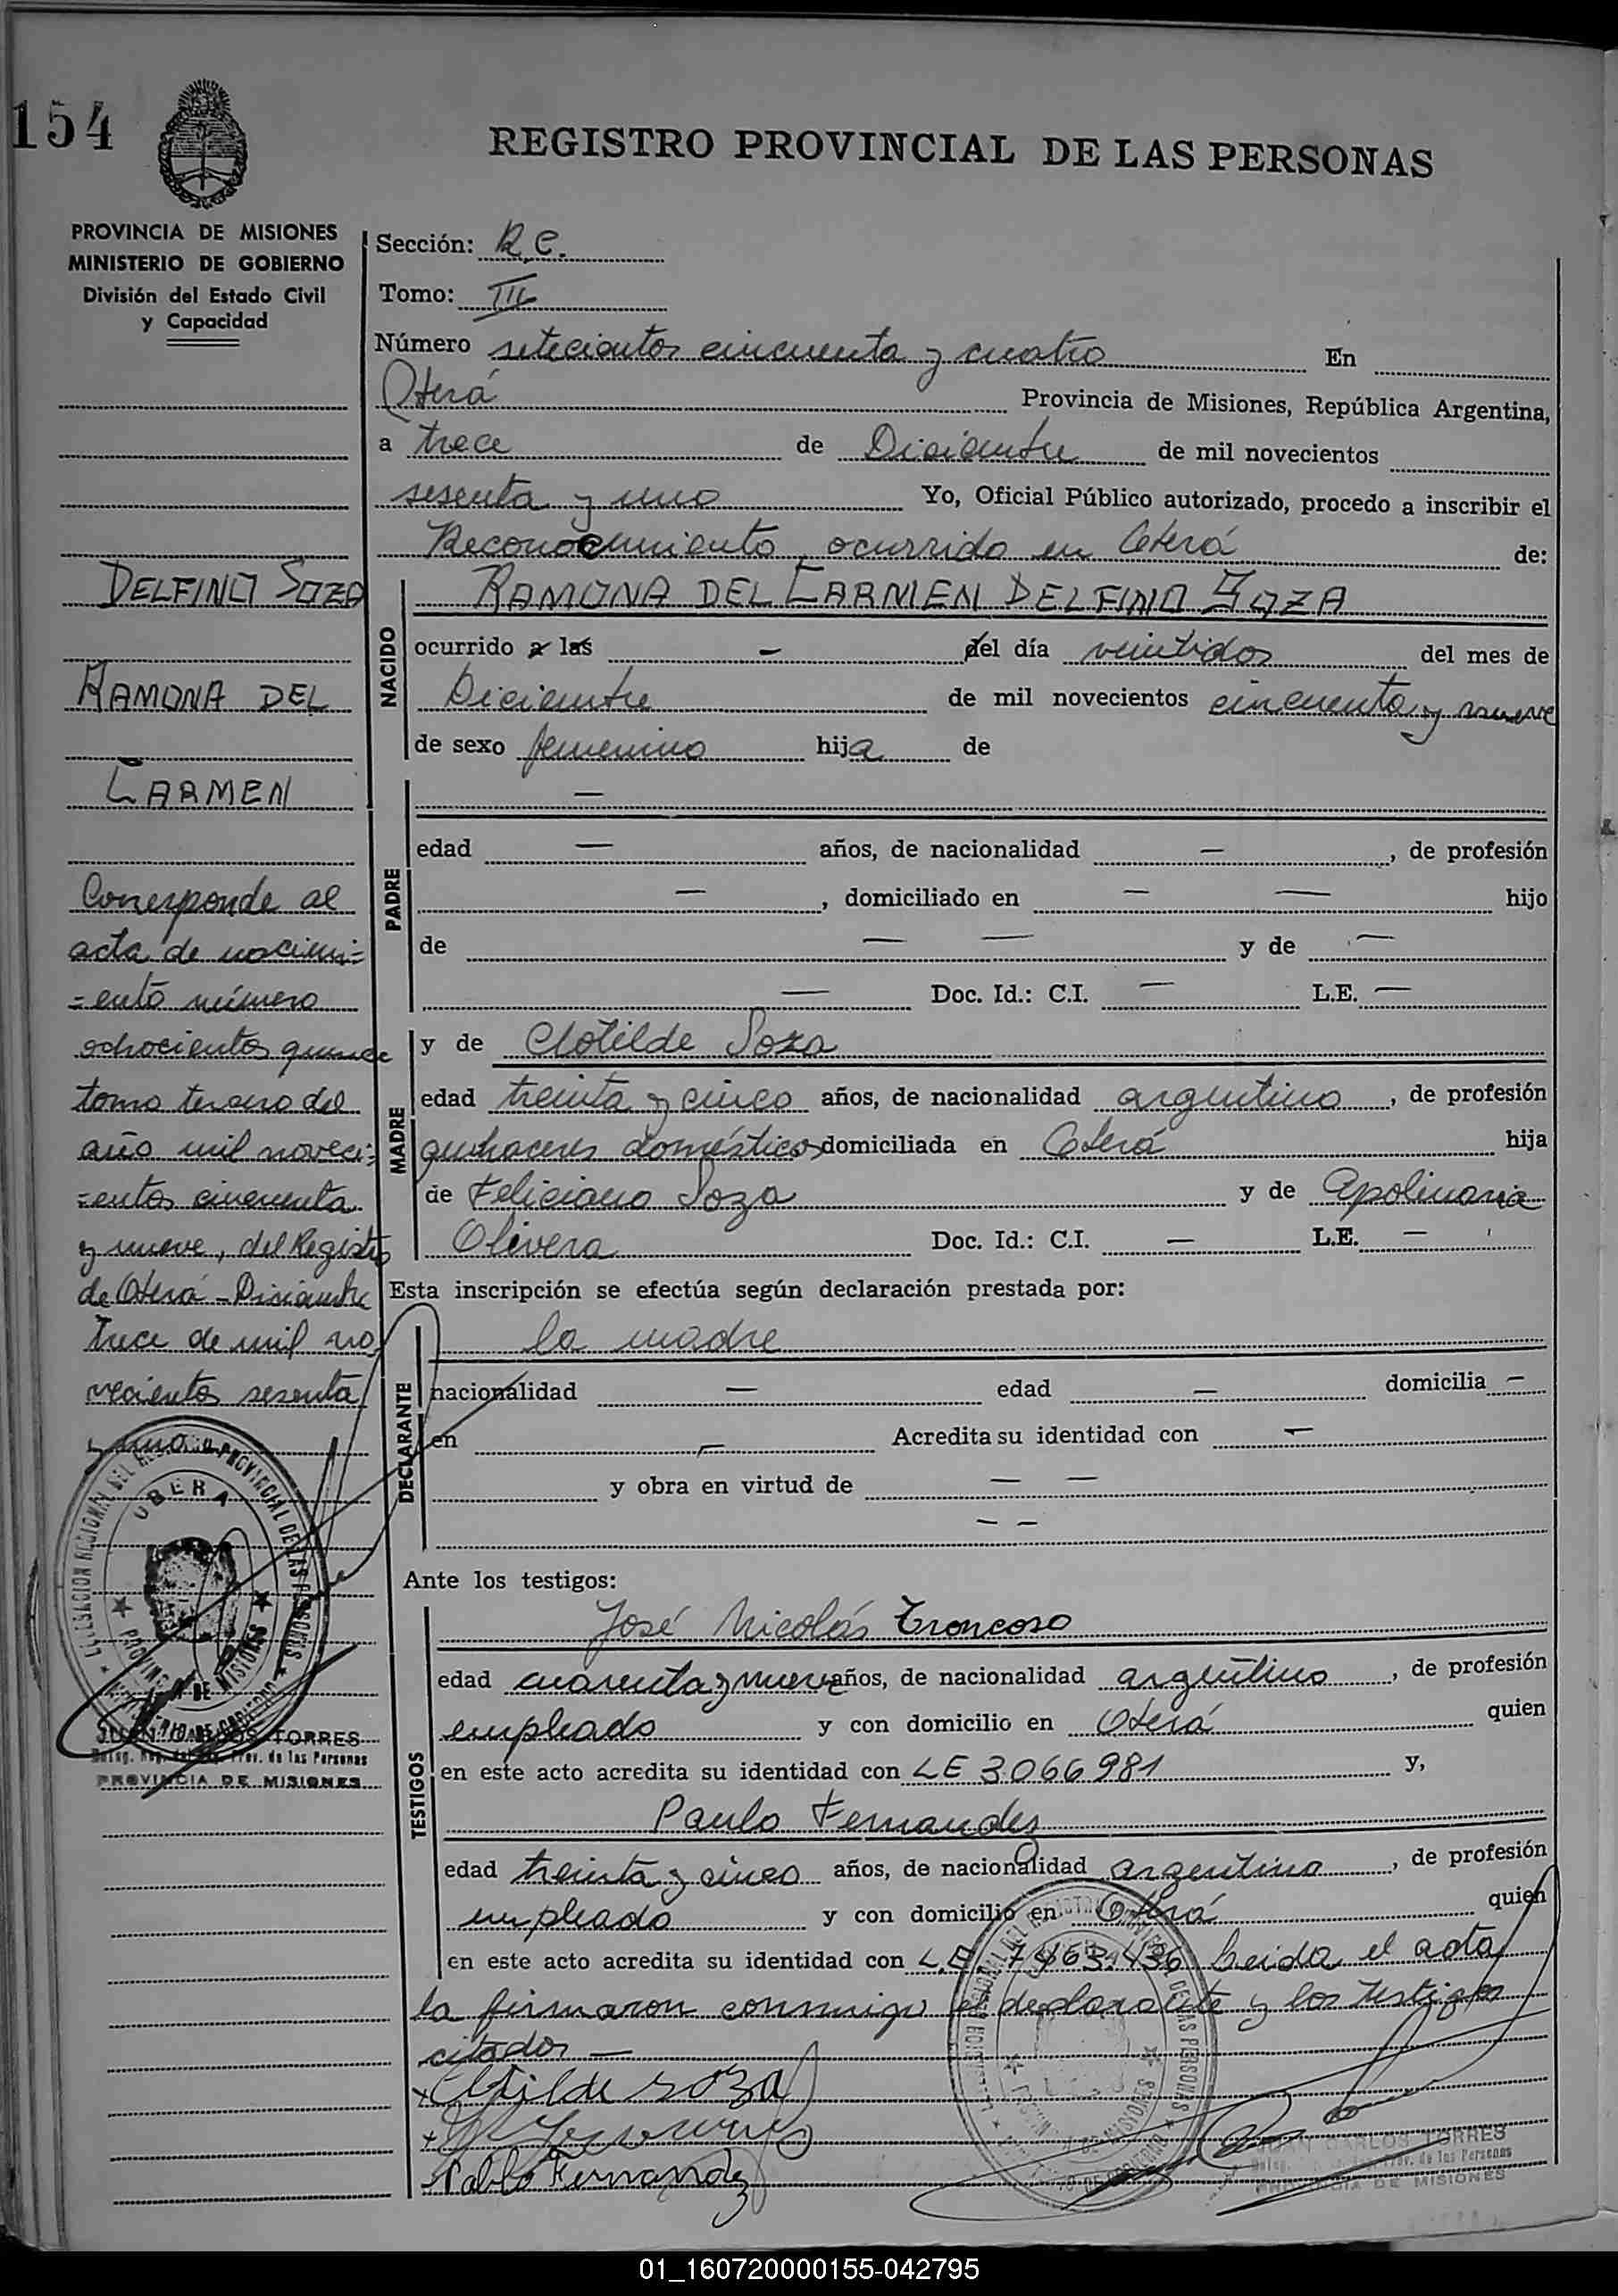 154
REGISTRO PROVINCIAL DE LAS PERSONAS
PROVINCIA DE MISIONES
MINISTERIO DE GOBIERNO
División del Estado Civil
y Capacidad
DELFINO SOZA
RAMONA DEL
CARMEN
Corresponde al
acta de nacimi=
=ento número
ochocientos quince
tomo tercero del
año mil noveci=
=entos cincuenta
y nueve, del Registro
de Oberá - Diciembre
trece de mil no
vecientos sesenta
y uno
DELEGACION REGIONAL DEL REGISTRO PROVINCIAL DE LAS PERSONAS
OBERA
PROVINCIA DE MISIONES
MINISTERIO DE GOBIERNO
JUAN CARLOS TORRES
Deleg. Reg. del Reg. Prov. de las Personas
PROVINCIA DE MISIONES
Sección: R.C.
Tomo: III
Número setecientos cincuenta y cuatro En
Oberá Provincia de Misiones, República Argentina,
a trece de Diciembre de mil novecientos
sesenta y uno Yo, Oficial Público autorizado, procedo a inscribir el
Reconocimiento, ocurrido en Oberá de:
NACIDO
RAMONA DEL CARMEN DELFINO SOZA
ocurrido a las - del día veintidos del mes de
Diciembre de mil novecientos cincuenta y nueve
de sexo femenino hija de
PADRE
—
edad — años, de nacionalidad —, de profesión
—, domiciliado en — — hijo
de — — y de —
— Doc. Id.: C.I. — L.E. —
MADRE
y de Clotilde Soza
edad treinta y cinco años, de nacionalidad argentina, de profesión
quehaceres domésticos domiciliada en Oberá hija
de Feliciano Soza y de Apolinaria
Olivera Doc. Id.: C.I. — L.E. —
Esta inscripción se efectúa según declaración prestada por:
DECLARANTE
la madre
nacionalidad — edad — domicilia —
en — Acredita su identidad con —
y obra en virtud de — —
— —
Ante los testigos:
TESTIGOS
José Nicolás Troncoso
edad cuarenta y nueve años, de nacionalidad argentino, de profesión
empleado y con domicilio en Oberá quien
en este acto acredita su identidad con LE 3066981 y,
Paulo Fernandes
edad treinta y cinco años, de nacionalidad argentino, de profesión
empleado y con domicilio en Oberá quien
en este acto acredita su identidad con L.E. 7463.436 Leida el acta
la firmaron conmigo el declarante y los testigos
citados —
+ Clotilde Soza
Pablo Fernandez
JUAN CARLOS TORRES
Deleg. Prov. de las Personas
PROVINCIA DE MISIONES
01_160720000155-042795